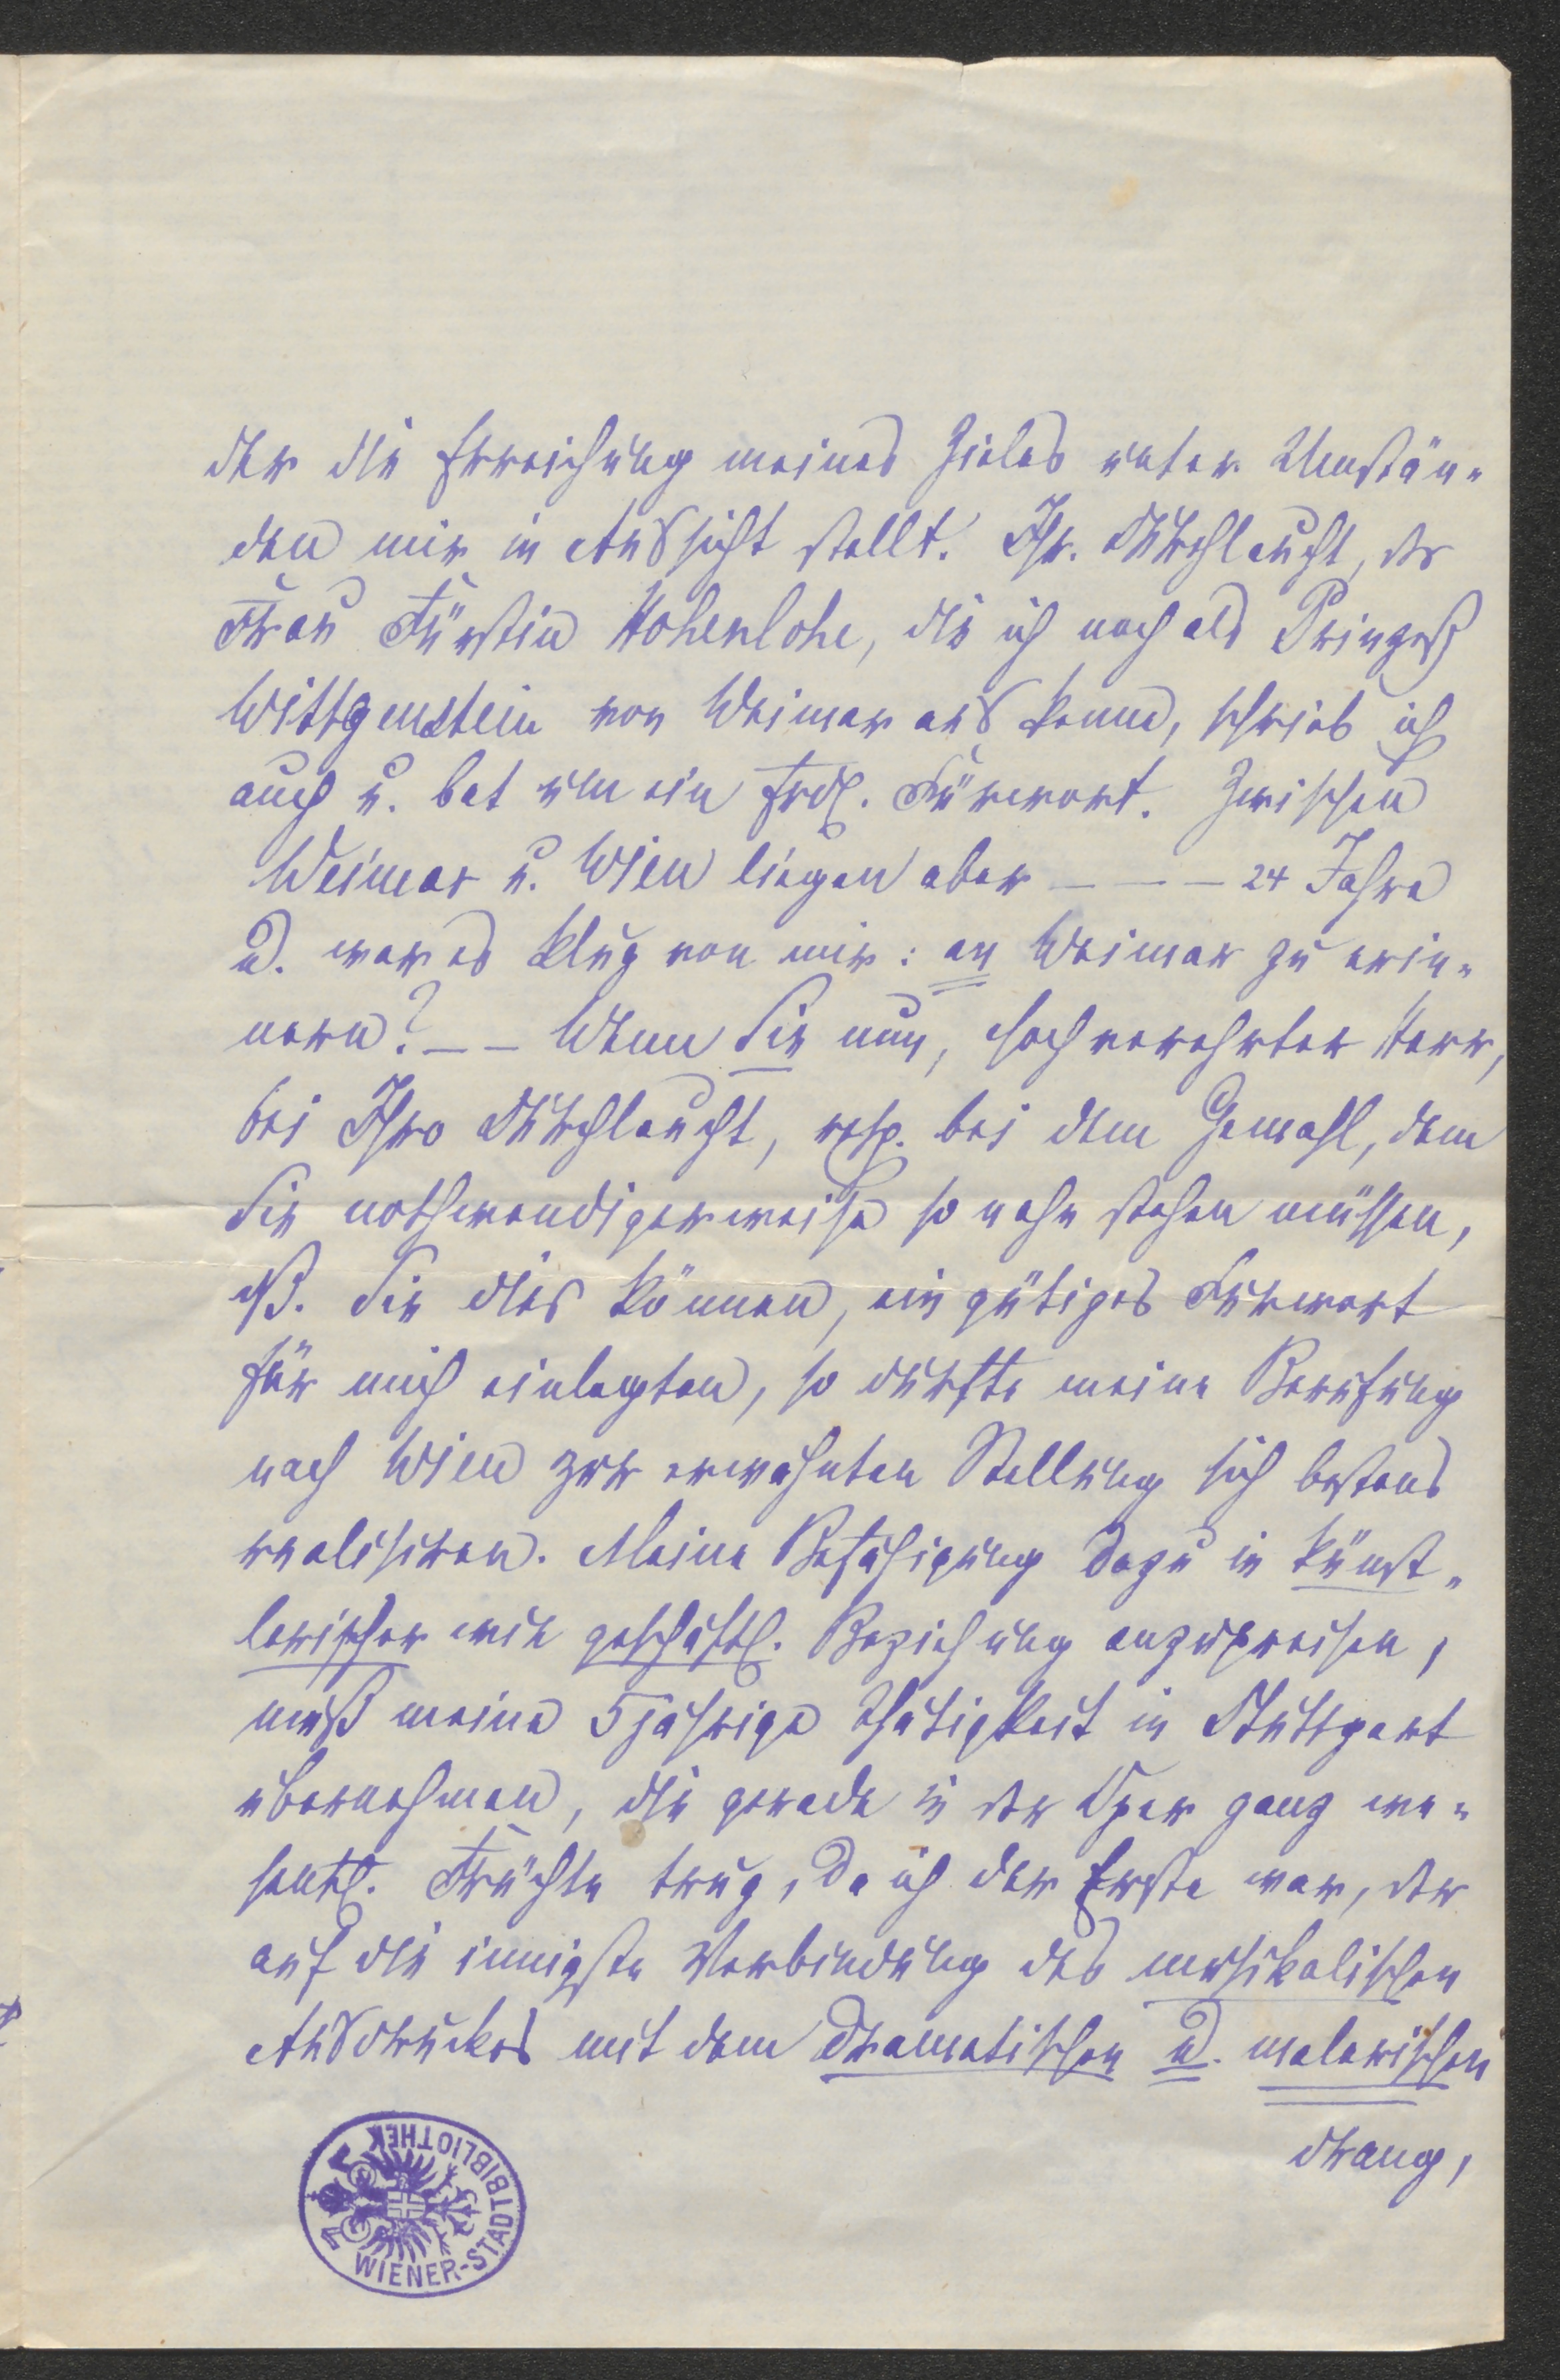 der die Erreichung meines Zieles unter Umstän-
den mir in Aussicht stellt. Ihr. Durchlaucht, der
Frau Fürstin Hohenlohe, die ich noch als Prinzeß
Wittgenstein von Weimar aus kenne, schrieb ich
auch u. bat um ein frdl. Fürwort. Zwischen
Weimar u. Wien liegen aber – – – 24 Jahre
u. war es klug von mir: an Weimar zu erin-
nern? – – Wenn Sie nun, hochverehrter Herr,
bei Ihro Durchlaucht, resp. bei dem Gemahl, dem
Sie nothwendigerweise so nahe stehen müssen,
dß. Sie dies können, ein gütiges Fürwort
für mich einlegten, so dürfte meine Berufung
nach Wien zur erwähnten Stellung sich bestens
realisiren. Meine Befähigung dazu in künst-
lerischer wie geschäftl. Beziehung anzupreisen,
muß meine 5jährige Thätigkeit in Stuttgart
übernehmen, die gerade in der Oper ganz we-
sentl. Früchte trug, da ich der Erste war, der
auf die innigste Verbindung des musikalischen
Ausdruckes mit dem dramatischen u. malerischen
drang,
WIENER-STADTBIBLIOTHEK